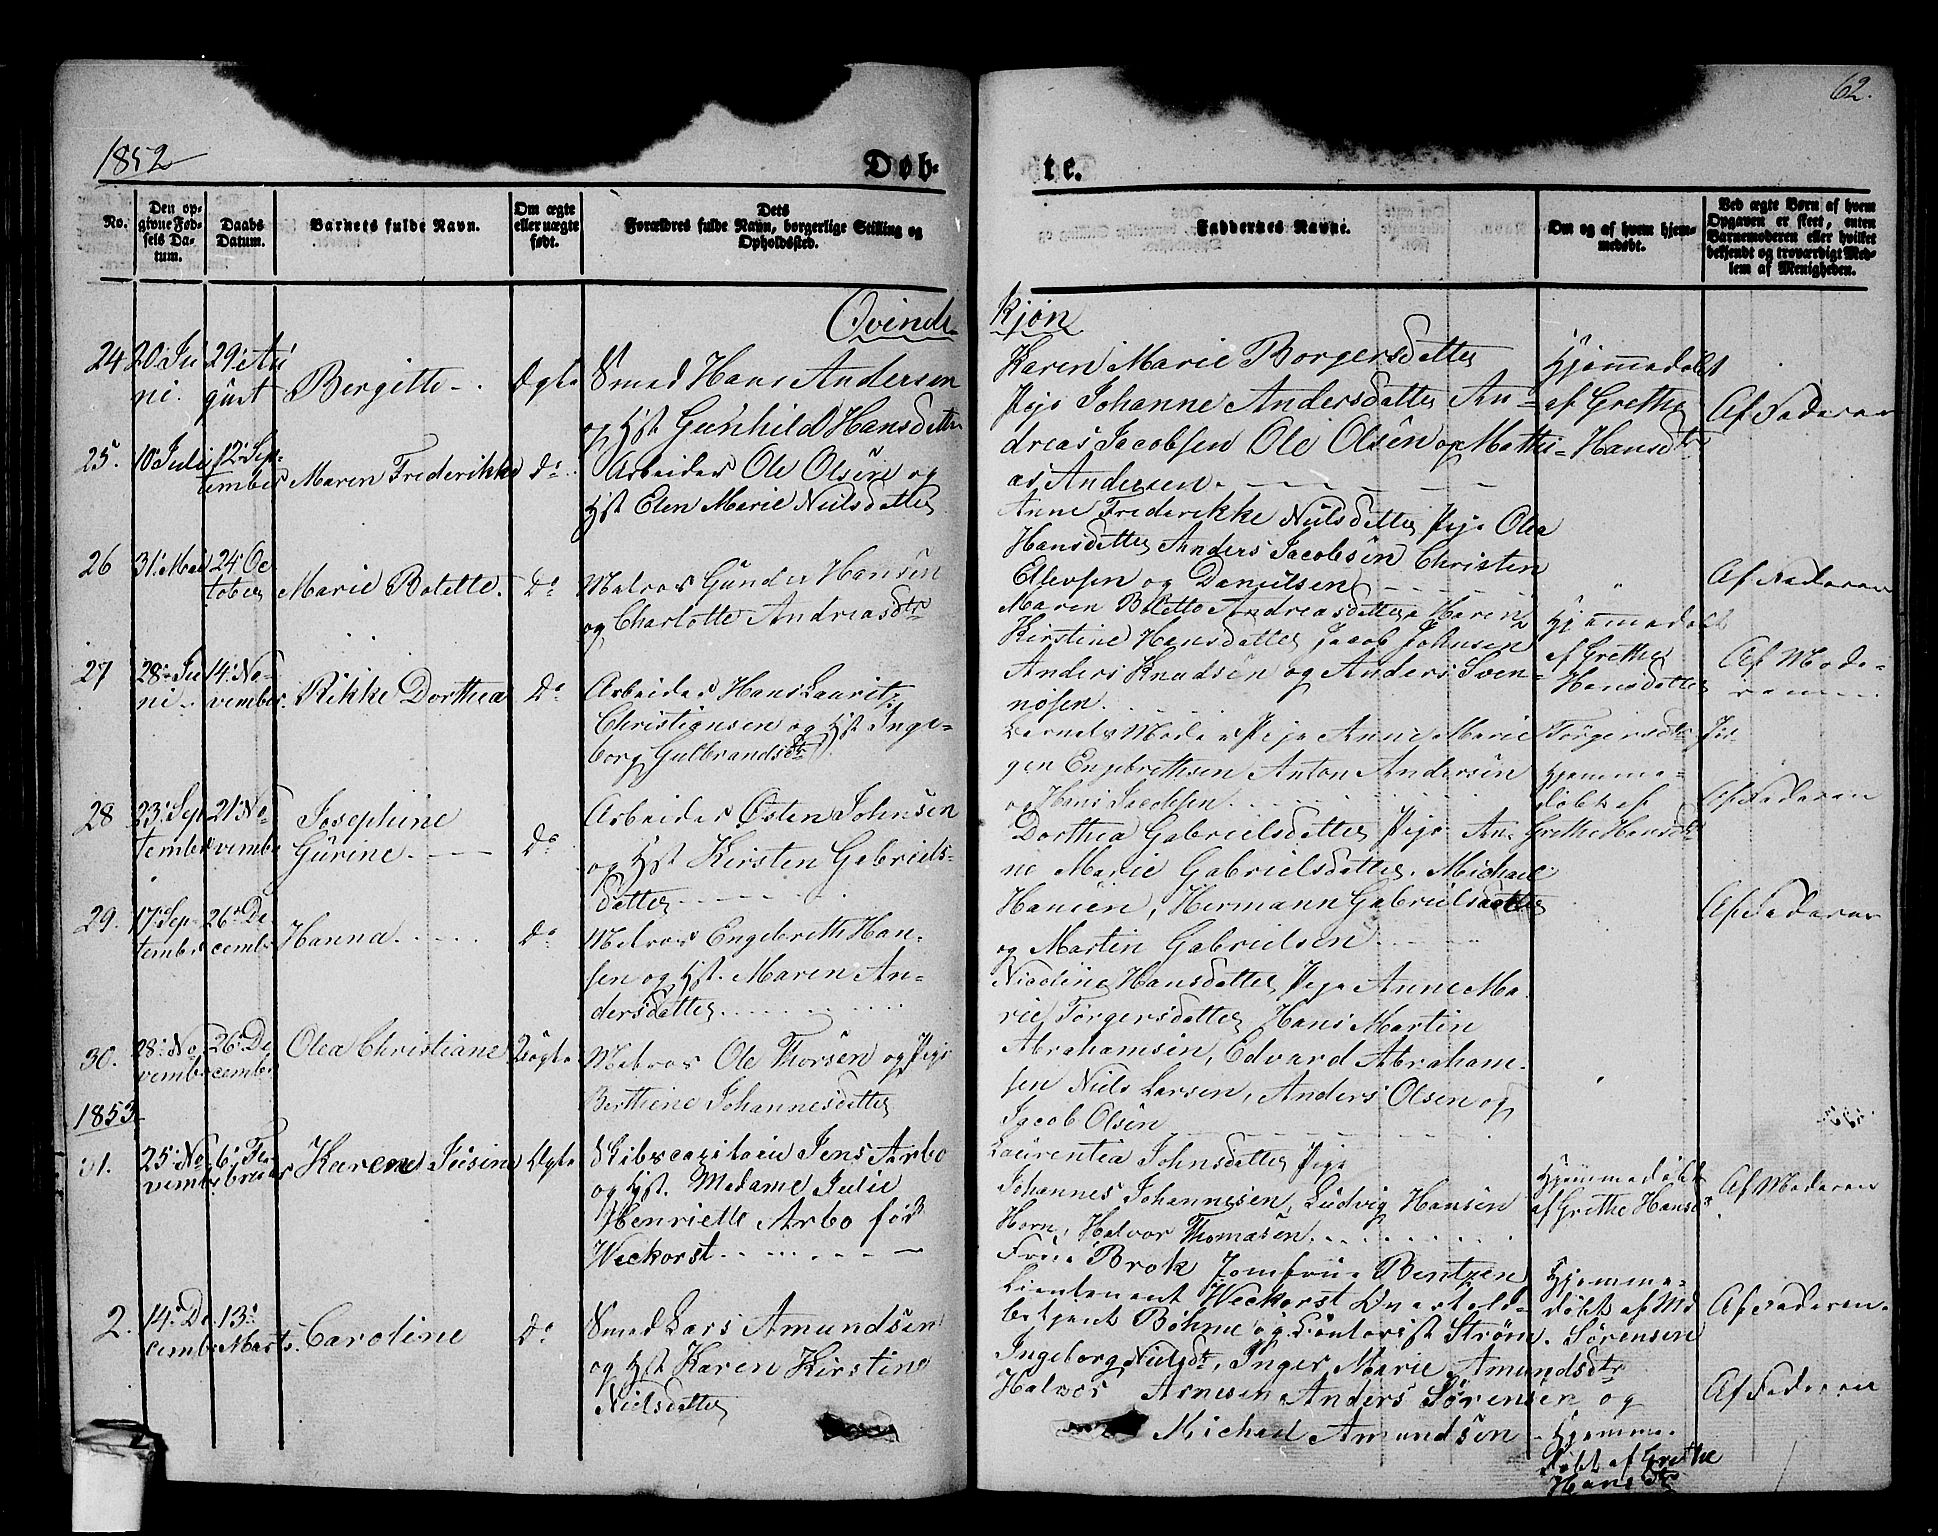 62.
1852
Døb-
te.
No.
Den op-
givne Fød-
sels Da-
tum.
Daabs
Datum.
Barnets fulde Navn.
Om ægte
eller uægte
født.
Dets
Forældres fulde Navn, borgerlige Stilling og
Opholdssted.
Faddernes Navne.
Om og af hvem hjem-
medøbt.
Ved ægte Børn af hvem
Opgaven er skeet, enten
Barnemoderen eller hvilket
bekjendt og troværdigt Med-
lem af Menigheden.
Qvinde
kjøn
24 20 Ju
ni.
29 Au
gust
Bergitte
Ægte
Smed Hans Andersen
og Hst Gunhild Hansdatter
Karen Marie Borgersdatter
Pige Johanne Andersdatter An-
dreas Jacobsen Ole Olsen og Mathi-
as Andersen
Hjemmedøbt
af Grethe
Hansdtr
Af Faderen
25. 10 Juli
12 Sep-
tember
Maren Frederikke
Do
Arbeider Ole Olsen og
Hst Elen Marie Nielsdatter
Anne Frederikke Nielsdatter Pige Olea
Hansdatter Anders Jacobsen Christen
Ellevsen og Danielsen
"
Af Faderen
26 31 Mai
24 Oc
tober
Marie Botette.
Do
Matros Gunder Hansen
og Charlotte Andreasdtr
Maren Botette Andreasdatter Maren
Kirstine Hansdatter Jacob Johnsen
Anders Knudsen og Anders Sven-
nøsen.
Hjemmedøbt
af Grethe
Hansdatter
Af Mode-
ren
27 28 Ju
ni
14 No-
vember.
Rikke Dorthea
Do
Arbeider Hans Lauritz
Christiansen og Hst Inge-
borg Gulbrandsdtr
Barnets Moder Pige Anne Marie Torgersdtr Jør-
gen Engebrethsen Anton Andersen
og Hans Jacobsen
Hjemme-
døbt af
Grethe Hansdtr
Af Faderen
28 23 Sep
tember
21 No-
vember
Josephine
Gurine.
Do
Arbeider Østen Johnsen
og Hst Kirsten Gabriels-
datter
Dorthea Gabrielsdatter Pige An-
ne Marie Gabrielsdatter. Michael
Hansen, Hermann Gabrielsdatter
og Martin Gabrielsen
Af Faderen
29. 17 Sep
tember
26 De
cember
Hanna.
Do
Matros Engebreth Han-
sen og Hst. Maren An-
dersdatter
Nicoline Hansdatter Pige Anne Ma
rie Torgersdatter Hans Martin
Abrahamsen, Edvard Abraham-
sen Niels Larsen, Anders Olsen og
Jacob Olsen
30. 28 No
vember
26 De
cember
Olea Christiane
Uægte
Matros Ole Thorsen og Pige
Berthine Johannesdatter
Laurentia Johnsdatter Pige
Johannes Johannesen, Ludvig Hansen
Horn, Halvor Thomasen
Hjemmedøbt
af Grethe Hansd
Af Moderen
1853
25 No
vember
6 Fe-
bruar
Karen
Ægte
Skibscapitain Jens Arbo
og Hst. Madame Julie
Henriette Arbo fød
Weckorst
Frue Brok Jomfrue Bentzen
Lieutenant Weckorst Overtold-
betjent Bøhme og Contorist Strøm.
Hjemme-
døbt af Md
Sørensen
Af Faderen.
2. 14 De
cember
13
Marts.
Caroline
Do
Smed Lars Amundsen
og Hst Karen Kirstine
Nielsdatter
Ingeborg Nielsdtr, Inger Marie Amundsdtr
Halvor Arnesen Anders Sørensen og
Michael Amundsen
Hjemme-
døbt af Grethe
Hansdtr
Af Faderen